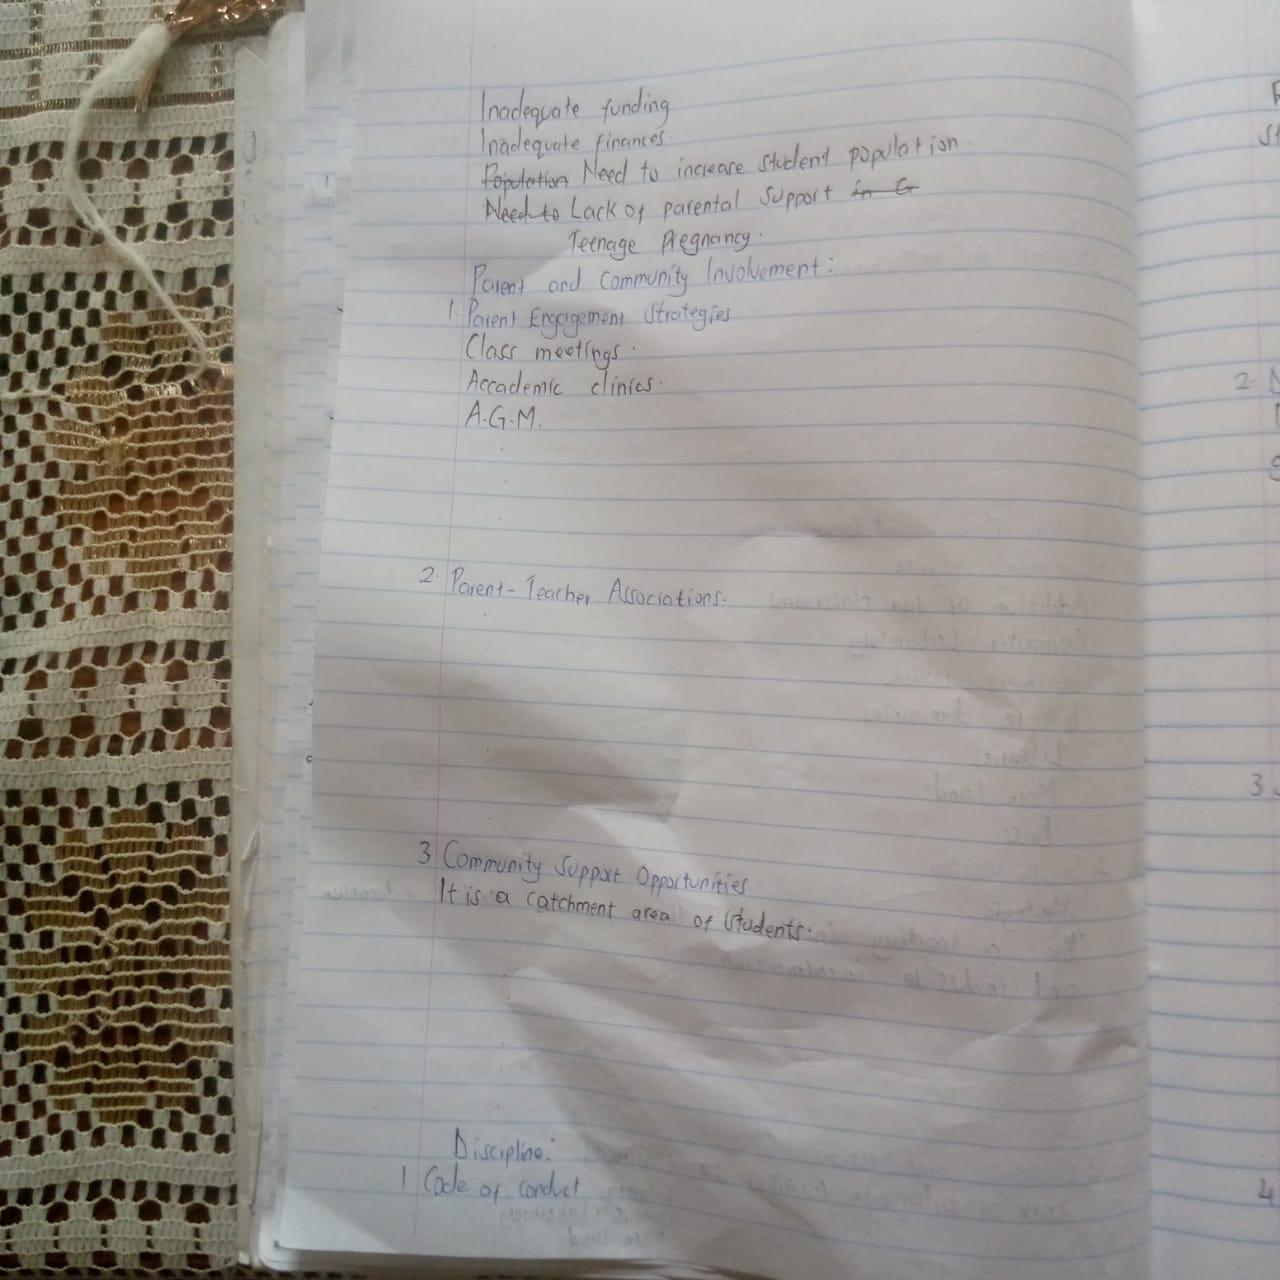 Inadequate funding
Inadequate finances.
Population Need to increase student population.
Need to Lack of parental support in G
Teenage Pregnancy.
Parent and Community Involvement:
1. Parent Engagement Strategies
Class meetings.
Accademic clinics.
A.G.M.
2. Parent-Teacher Associations.
3 Community Support Opportunities
It is a catchment area of students.
Discipline:
1 Code of conduct
2.
3
4